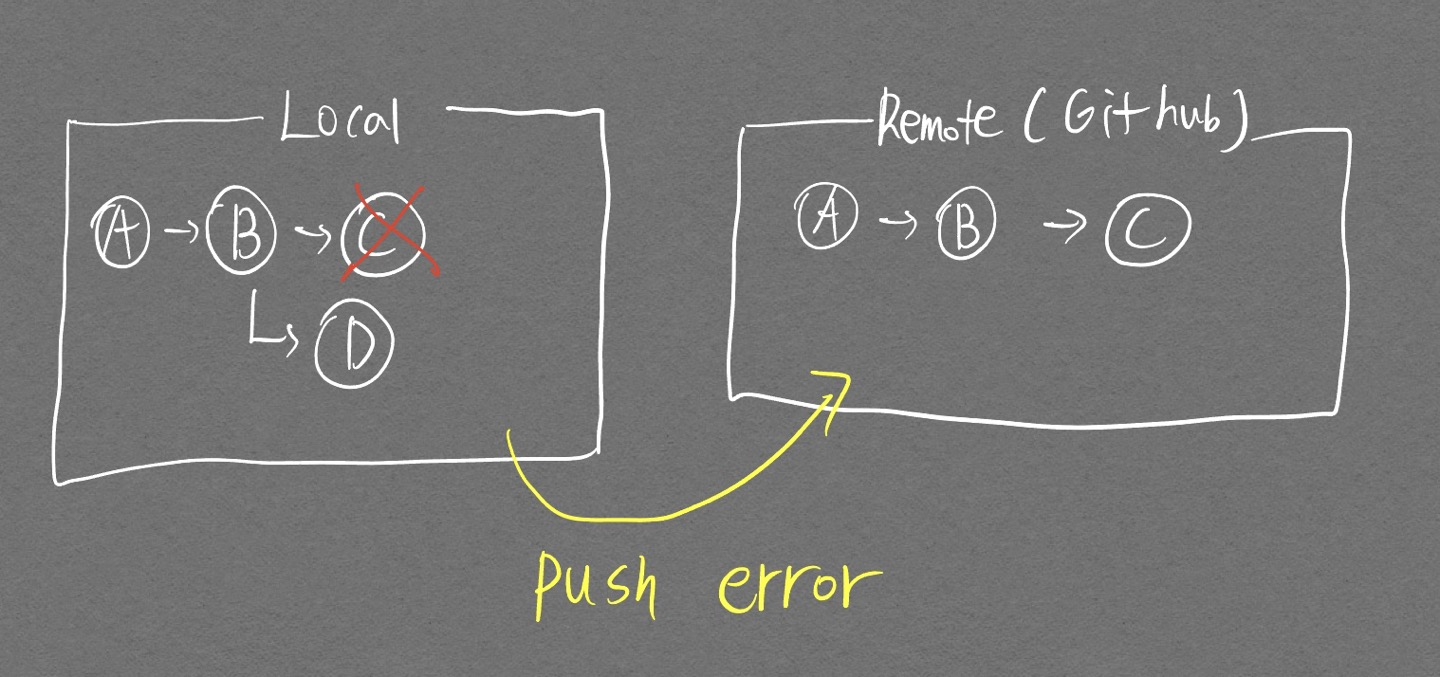 Local
A → B → C
D
Remote (Github)
A → B → C
push error